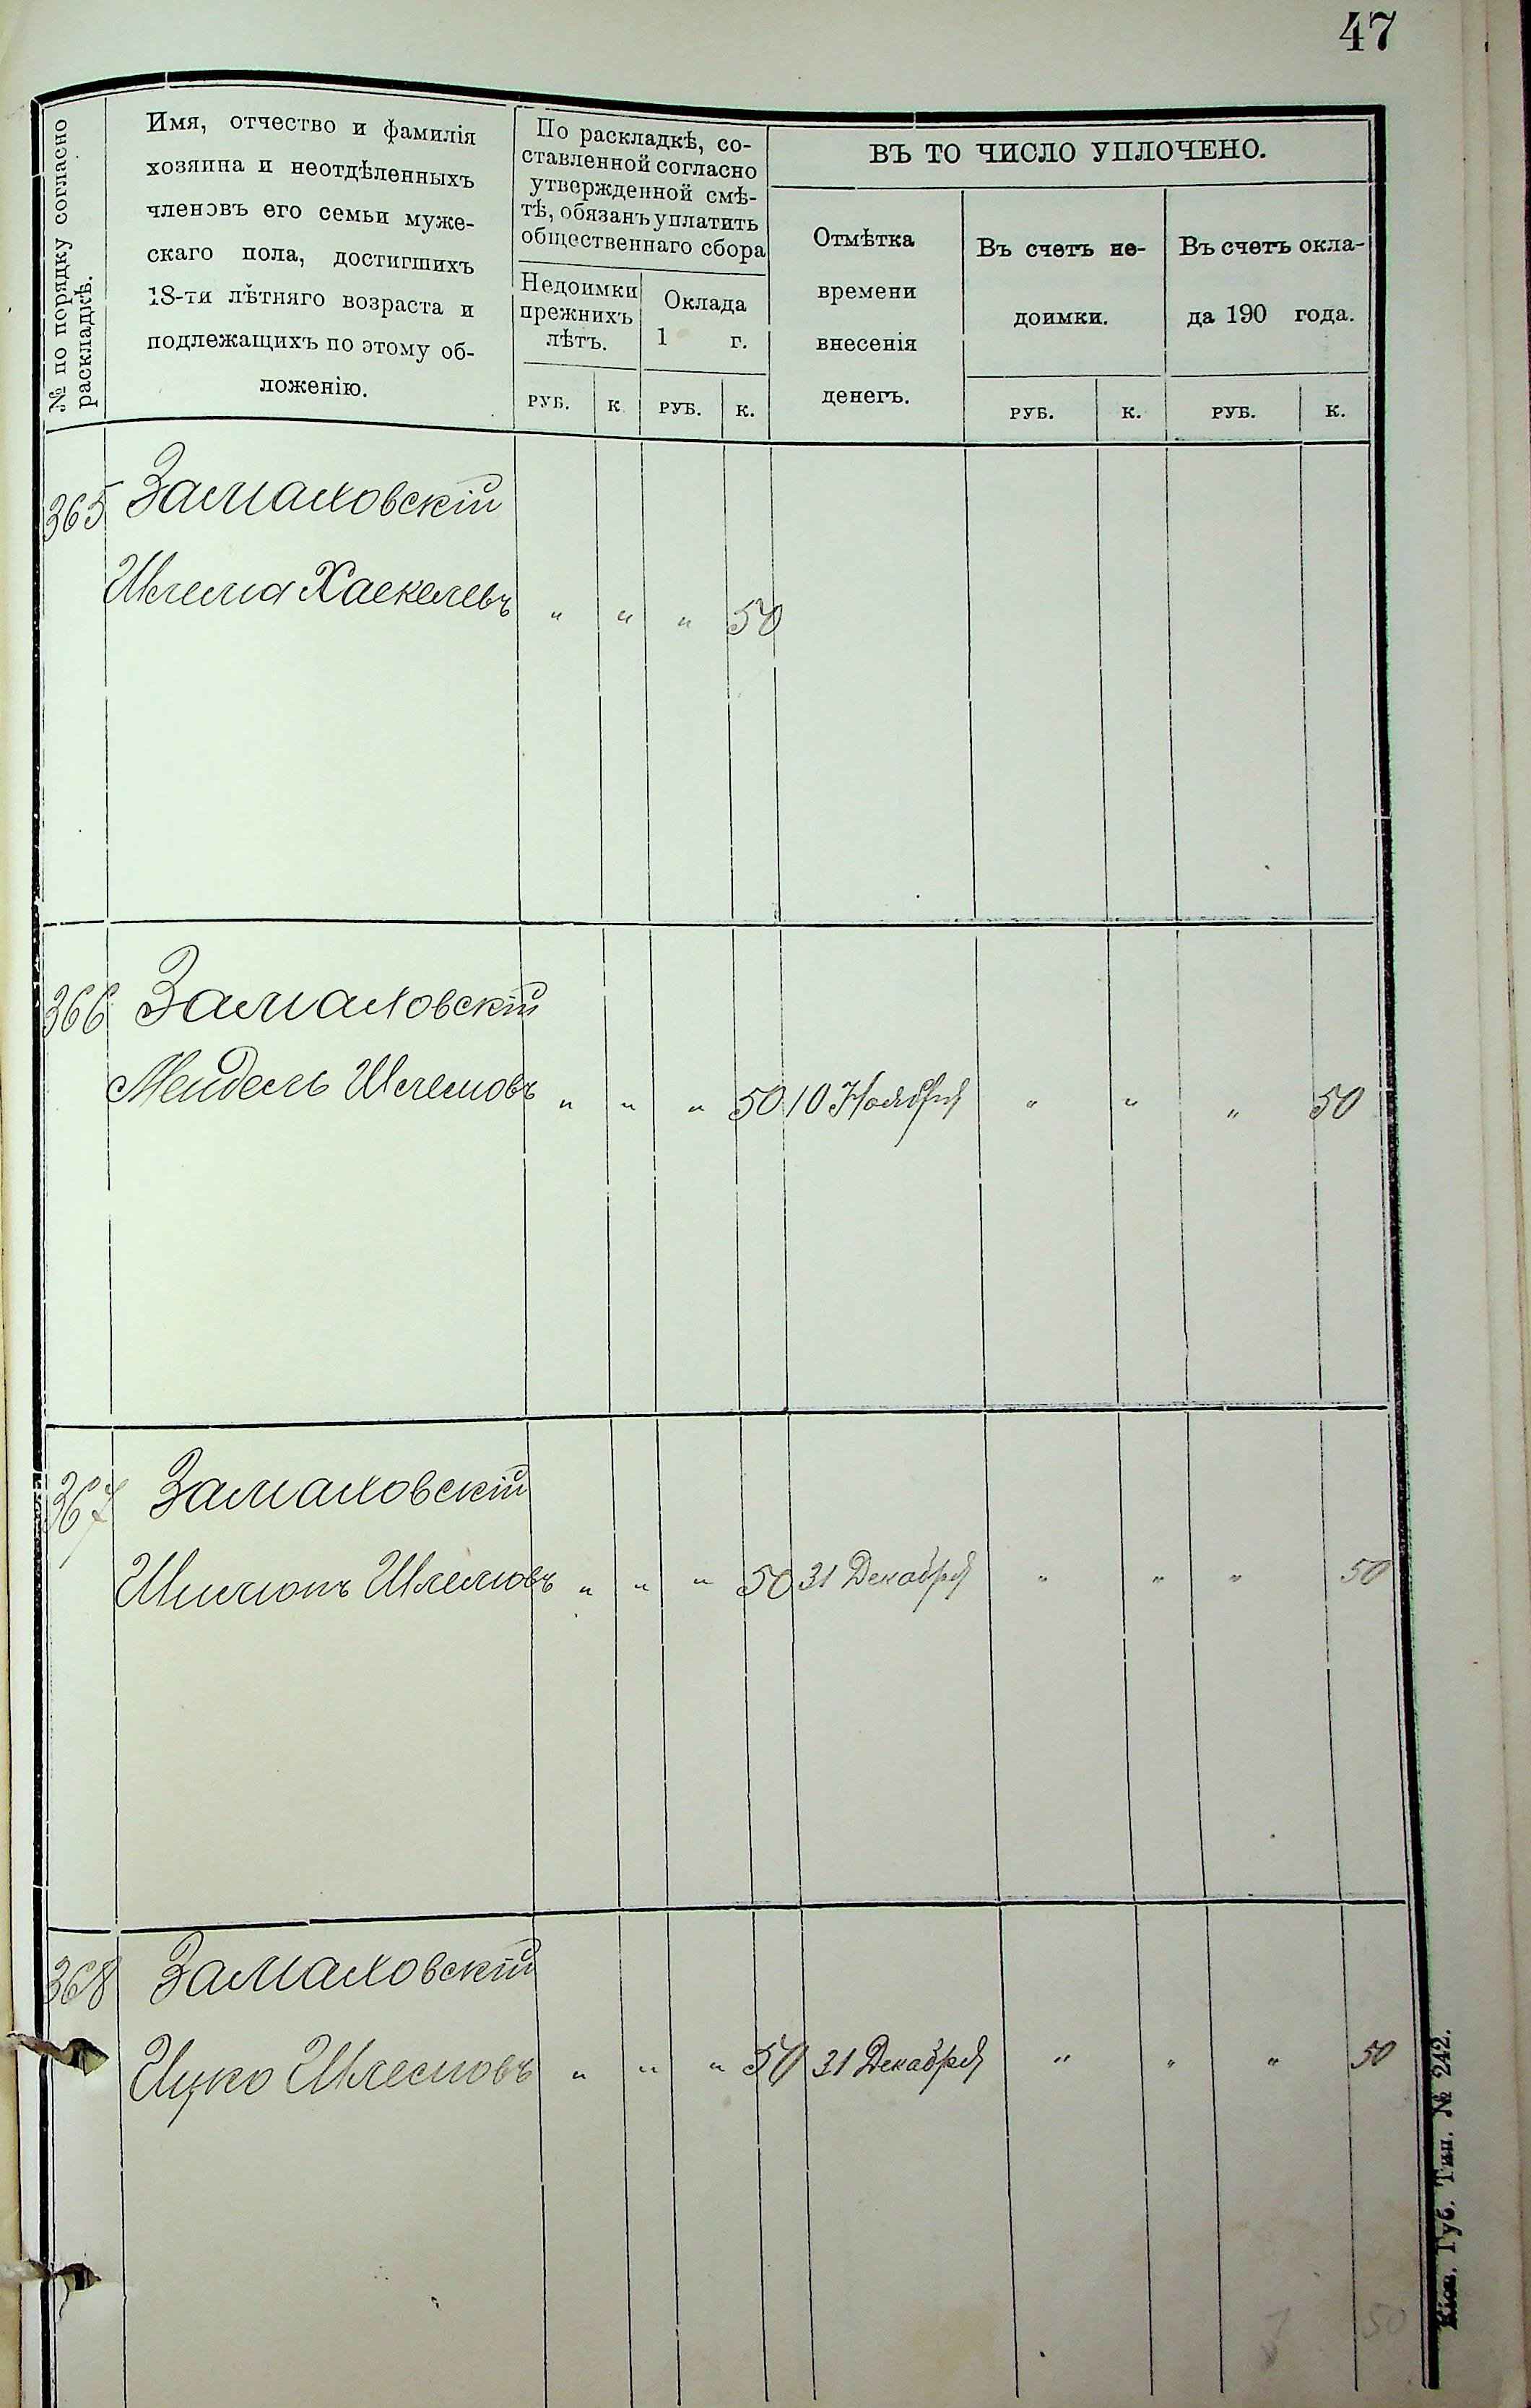 47
№ по порядку согласно
раскладкѣ.
Имя, отчество и фамилія
хозяина и неотдѣленныхъ
членовъ его семьи муже-
скаго пола, достигшихъ
18-ти лѣтняго возраста и
подлежащихъ по этому об-
ложенію.
По раскладкѣ, со-
ставленной согласно
утвержденной смѣ-
тѣ, обязанъ уплатить
общественнаго сбора
Недоимки
прежнихъ
лѣтъ.
Оклада
1 г.
РУБ. К РУБ. К.
ВЪ ТО ЧИСЛО УПЛОЧЕНО.
Отмѣтка
времени
внесенія
денегъ.
Въ счетъ не-
доимки.
Въ счетъ окла-
да 190 года.
РУБ. К. РУБ. К.
365 Замаховскій
Шлема Хаскелевъ " " " 50
366 Замаховскій
Мендель Шлемовъ " " " 50 10 Ноября " " " 50
367 Замаховскій
Шимонъ Шлемовъ " " " 50 31 Декабря " " " 50
368 Замаховскій
Ицко Шлемовъ " " " 50 31 Декабря " " " 50
50
Кіев. Губ. Тип. № 242.